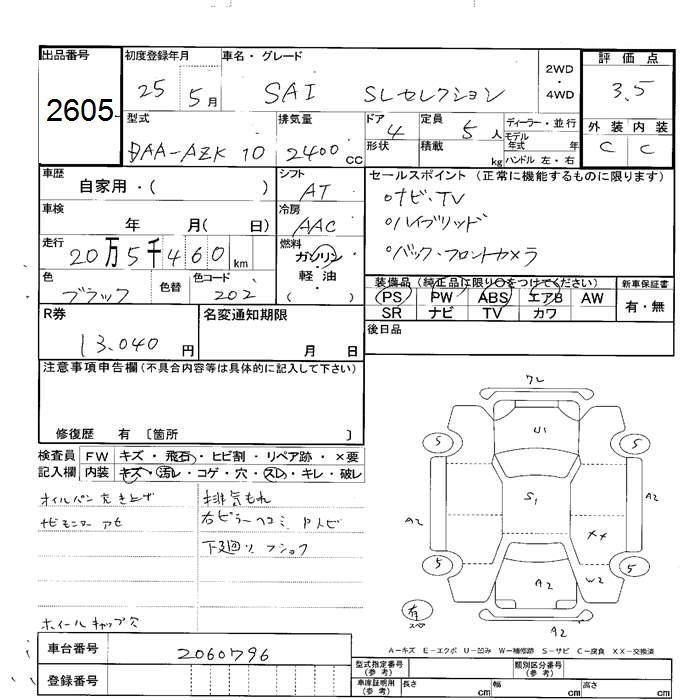 出品番号 初度登録年月 車名・グレード 2WD・4WD 評価点
2605 25 5月 SAI SLセレクション 3.5
型式 排気量 ドア 4 定員 5人 ディーラー・並行 外装 内装
DAA-AZK10 2400cc 形状 積載 kg モデル年式 年 C C
ハンドル 左・右
車歴 自家用・( ) シフト AT セールスポイント (正常に機能するものに限ります)
車検 年 月( 日) 冷房 AAC oナビ・TV
走行 20万5千460km 燃料 ガソリン 軽油 ( ) oハイブリッド
色 ブラック 色替 色コード 202 oバック・フロントカメラ
装備品(純正品に限り○をつけてください) 新車保証書
PS PW ABS エアB AW 有・無
SR ナビ TV カワ
R券 13.040円 名変通知期限 月 日 後日品
注意事項申告欄(不具合内容等は具体的に記入して下さい)
修復歴 有 〔箇所 〕
検査員 FW キズ・飛石・ヒビ割・リペア跡・×要
記入欄 内装 キズ・汚レ・コゲ・穴・スレ・キレ・破レ
オイルパン 排気もれ
ナビモニター アセ 右ピラーヘコミ
下廻り
ホイールキャップ欠
ワレ
U1
5 5
S1
A2 A2
XX
5 5
A2 W2
有
スペア
A2
A-キズ E-エクボ U-凹み W-補修跡 S-サビ C-腐食 XX-交換済
車台番号 2060796 型式指定番号(参考) 類別区分番号(参考)
登録番号 車庫証明用(参考) 長さ cm 幅 cm 高さ cm